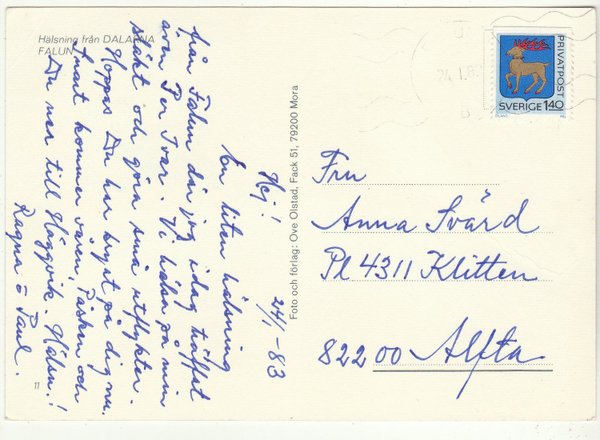 Hälsning från DALARNA
FALUN
24/1-83
Hej!
En liten hälsning
från Falun där jag idag träffat
även Per Ivar. Vi hälsa på min
släkt och göra små utflykter.
Hoppas Du har krympt på dig nu.
Snart kommer våren, Påsken och
Du ner till Häggvik. Hälsn.!
Ragna o Paul.
11
Foto och förlag: Ove Olstad, Fack 51, 79200 Mora
PRIVATPOST
SVERIGE 140
24.1.8
Fru
Anna Svärd
Pl 4311 Klitten
82200 Alfta